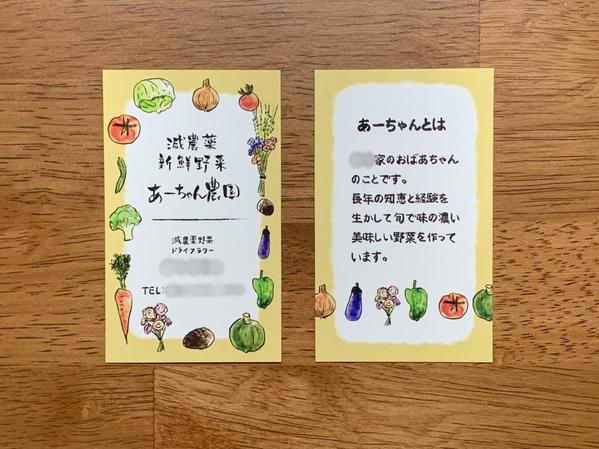 減農薬
新鮮野菜
あーちゃん農園
減農薬野菜
ドライフラワー
TEL:
あーちゃんとは
家のおばあちゃん
のことです。
長年の知恵と経験を
生かして旬で味の濃い
美味しい野菜を作って
います。